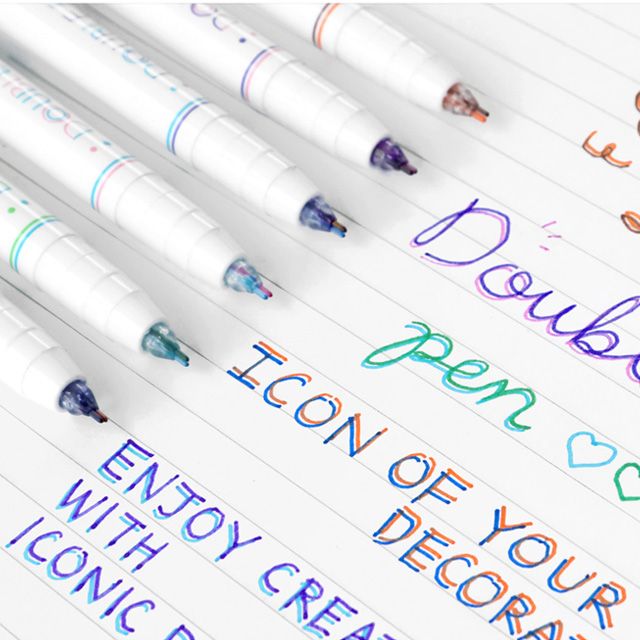 Doub
pen
ICON OF YOUR
DECORA
ENJOY CREA
WITH
ICONIC